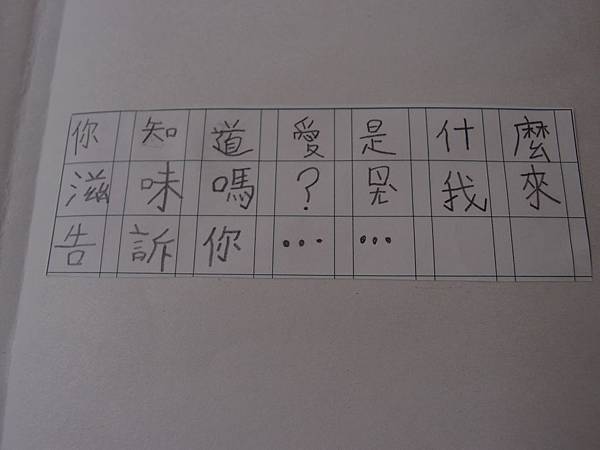 你知道愛是什麼
滋味嗎？ㄖㄤˋ我來
告訴你⋯⋯